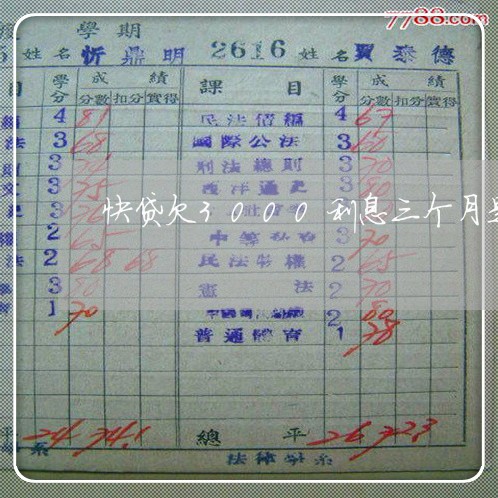 7788.com
學期
姓名 忻鼎明 2616 姓名 賈泰德
目 學分 成績 課目 學分 成績
分數 扣分 實得 分數 扣分 實得
4 81 民法債編 4 67
法 3 68 國際公法 3 60
3 刑法總則 3 70
3 75 西洋通史 3
3
快贷欠3000利息三个月
2 65 3 70
法 2 68 68 民法物權 2 65
3 80 憲法 2 70
1 70 2 80
普通體育 1 78
平 24 74.1 總平 26 72.3
系 法律學系